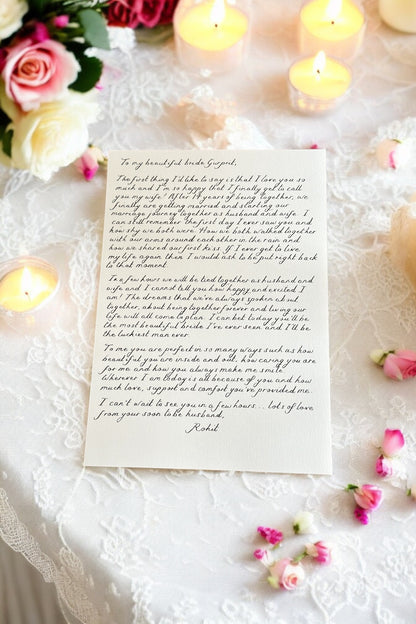 To my beautiful bride Gurpreet,
The first thing I'd like to say is that I love you so
much and I'm so happy that I finally get to call
you my wife! After 14 years of being together, we
finally are getting married and starting our
marriage journey together as husband and wife. I
can still remember the first day I ever saw you and
how shy we both were. How we both walked together
with our arms around each other in the rain and
how we shared our first kiss. If I ever get to live
my life again then I would ask to be put right back
to that moment.
In a few hours we will be tied together as husband and
wife and I cannot tell you how happy and excited I
am! The dreams that we've always spoken about
together, about being together forever and living our
life will all come to plan. I can bet today you'll be
the most beautiful bride I've ever seen and I'll be
the luckiest man ever.
To me you are perfect in so many ways such as how
beautiful you are inside and out, how caring you are
for me and how you always make me smile.
Wherever I am today is all because of you and how
much love, support and comfort you've provided me.
I can't wait to see you in a few hours... lots of love
from your soon to be husband,
Rohit